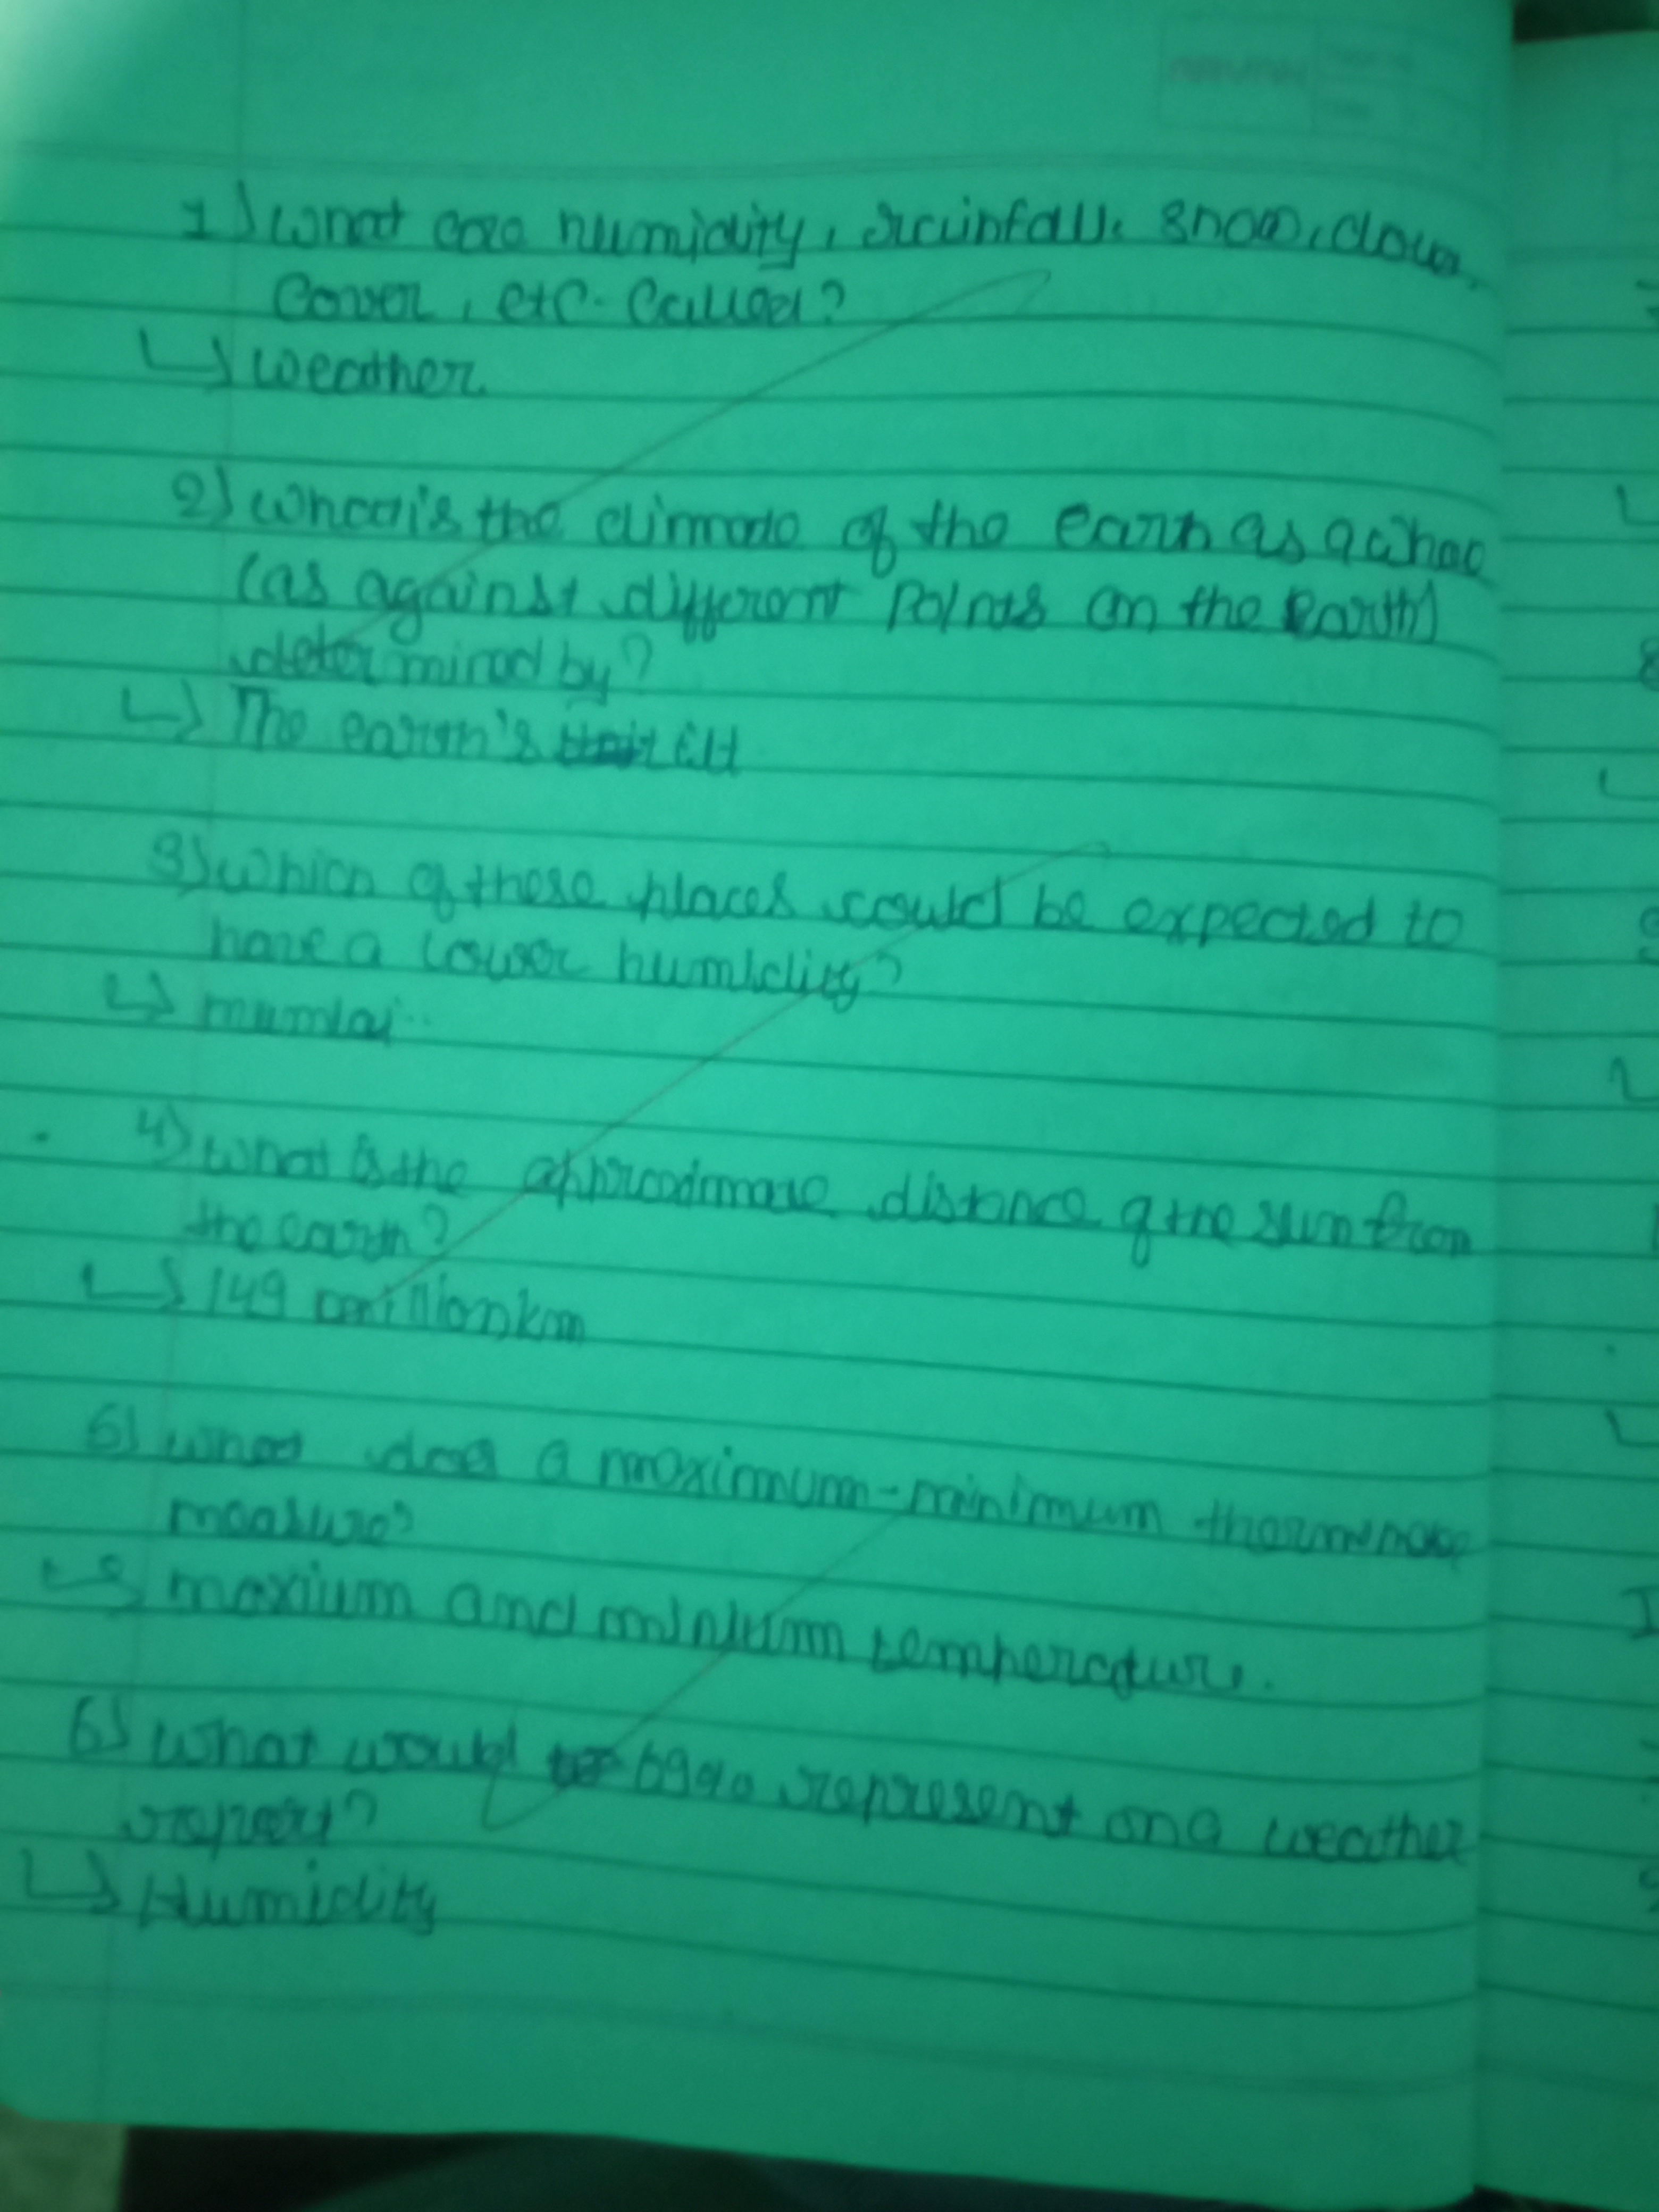 1) what are humidity, rainfall, snow, cloud
cover, etc. called?
↳ weather
2) what is the climate of the earth as a
(as against different points on the earth)
determined by?
↳ The earth's tilt
3) which of these places could be expected to
have a lower humidity?
↳
4) what is the distance of the sun from
the earth?
↳ 149 million km
5) what does a maximum-minimum
measure?
↳ maxium and minium temperature.
6) what would 69% represent on a weather
report?
↳ Humidity